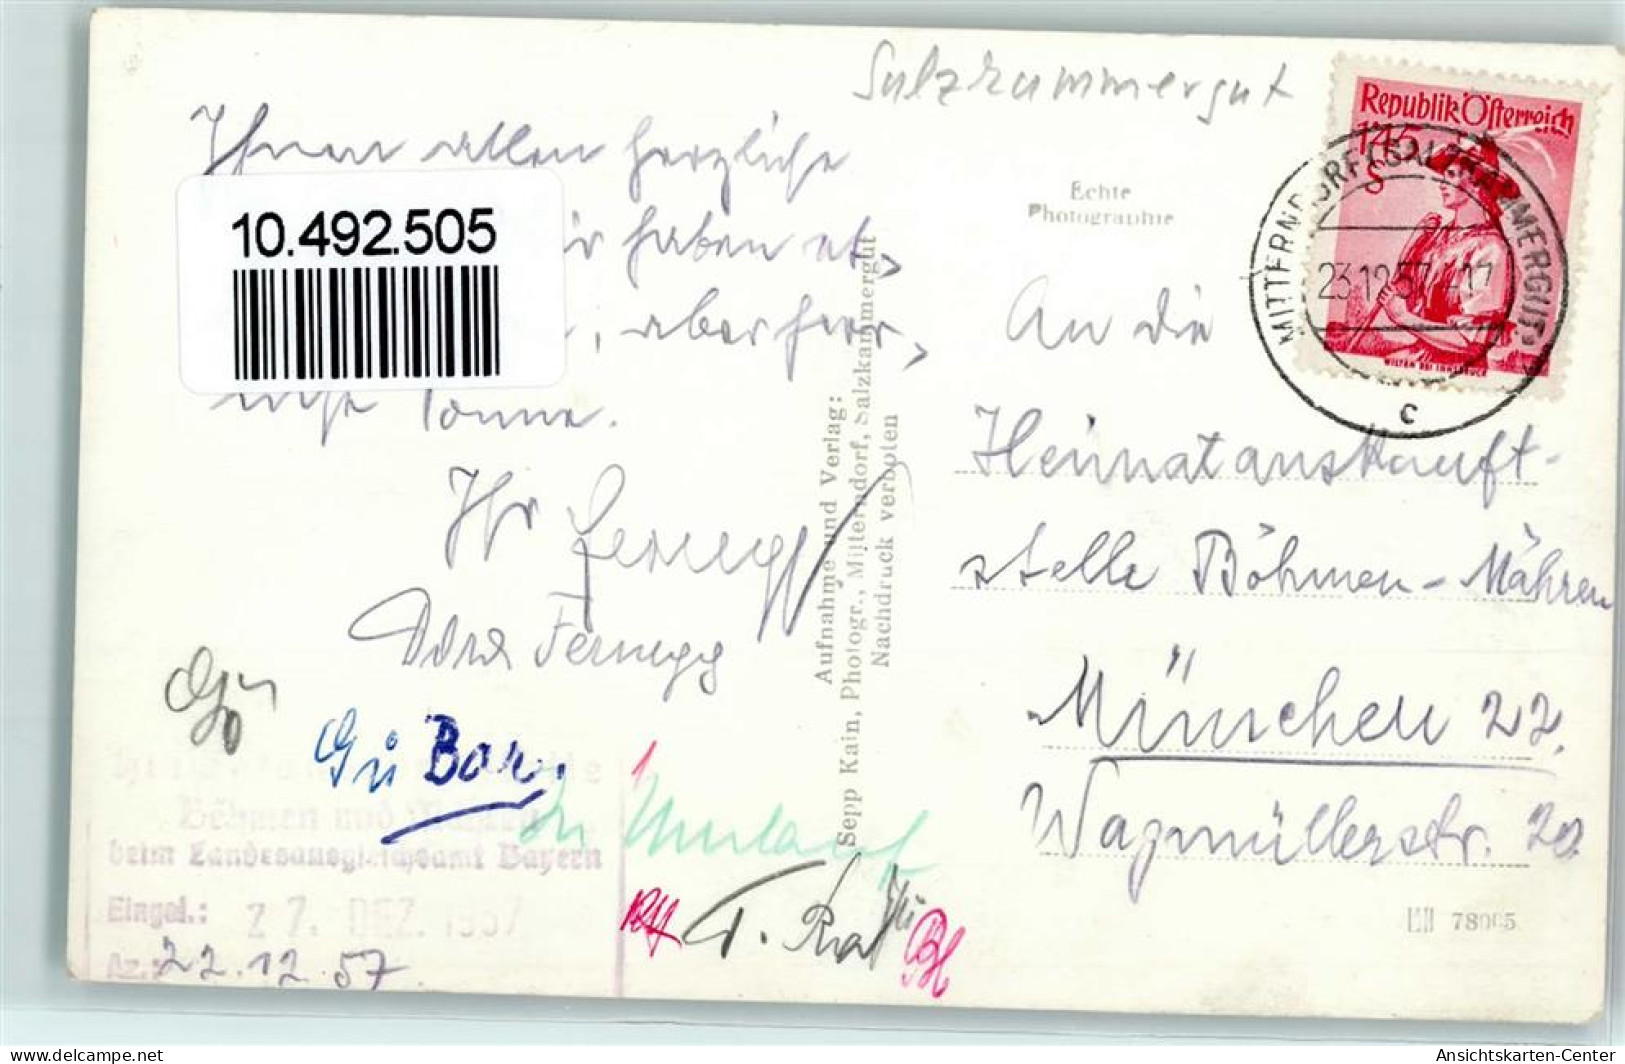 Salzkammergut
Ihnen allen herzliche
10.492.505
wir haben et,
, aber herr,
liche Sonne.
Ihr Fernegg
Dora Fernegg
Gü Bar.
In Umlauf
T. Rat
Böhmen und Mähren
beim Landesausgleichsamt Bayern
Eingel.: 27. DEZ. 1957
Az.:
22.12.57
Aufnahme und Verlag:
Sepp Kain, Photogr., Mitterndorf, Salzkammergut
Nachdruck verboten
Echte
Photographie
Republik Österreich
1'45
S
WILTEN BEI INNSBRUCK
MITTERNDORF (SALZKAMMERGUT)
23.12.57-17
c
An die
Heimatauskunft-
stelle Böhmen-Mähren
München 22.
Wagmüllerstr. 20
78005
delcampe.net
Ansichtskarten-Center